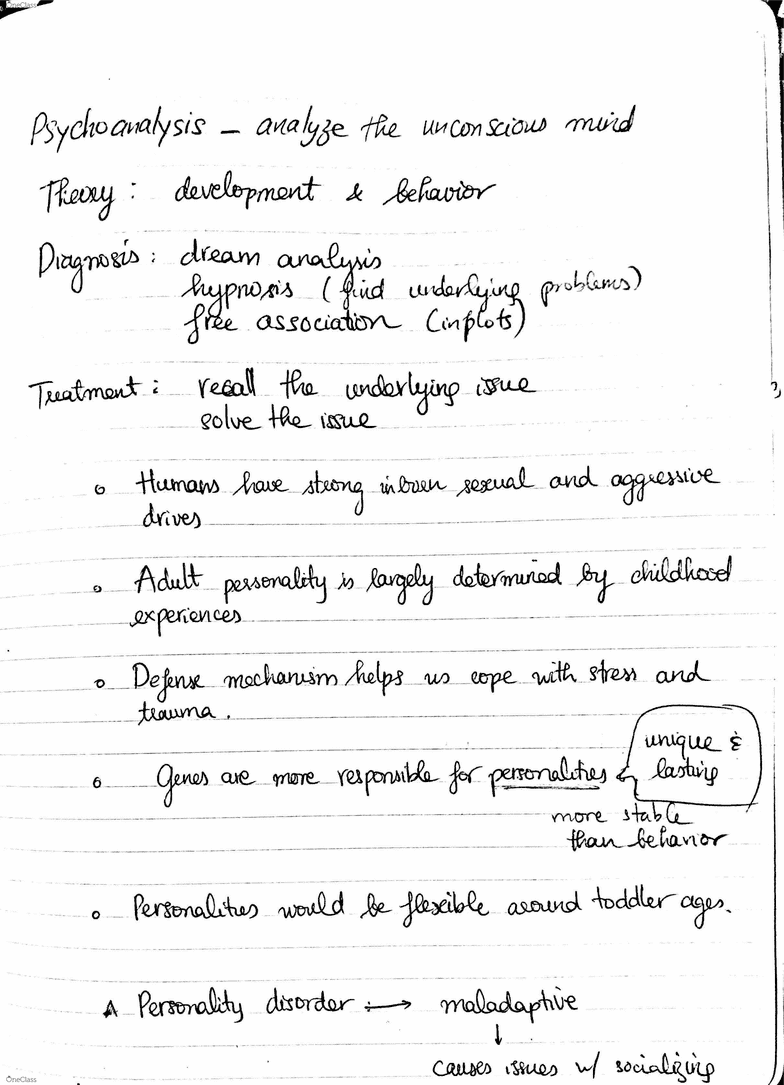 OneClass
Psychoanalysis – analyze the unconscious mind
Theory : development & behavior
Diagnosis : dream analysis
hypnosis (find underlying problems)
free association (inplots)
Treatment : recall the underlying issue
solve the issue
o Humans have strong inborn sexual and aggressive
drives
o Adult personality is largely determined by childhood
experiences
o Defense mechanism helps us cope with stress and
trauma.
unique &
o Genes are more responsible for personalities lasting
more stable
than behavior
o Personalities would be flexible around toddler ages.
Personality disorder : → maladaptive
↓
causes issues w/ socializing
OneClass